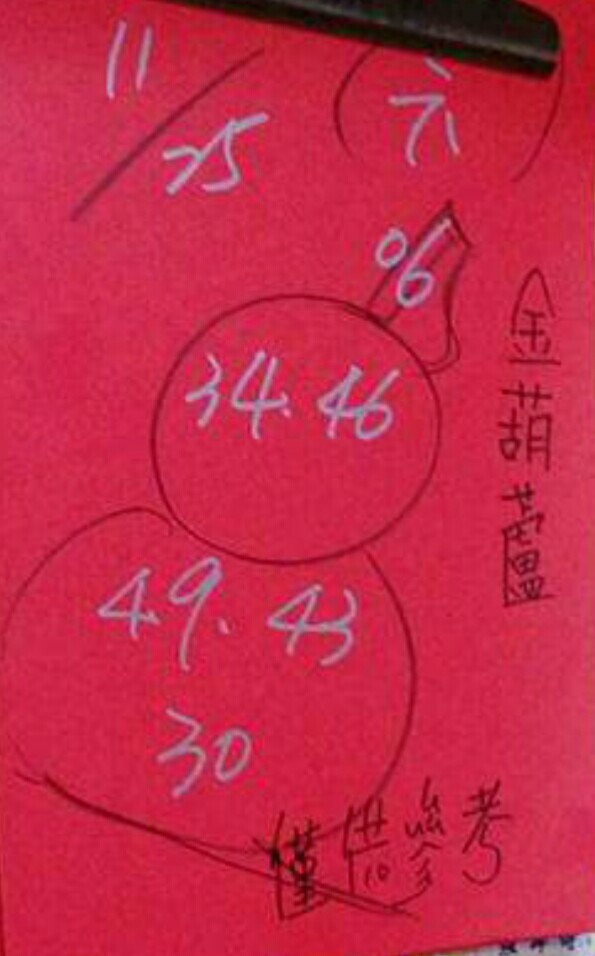 11/25
六
06
34.46
49.43
30
金葫蘆
僅供參考